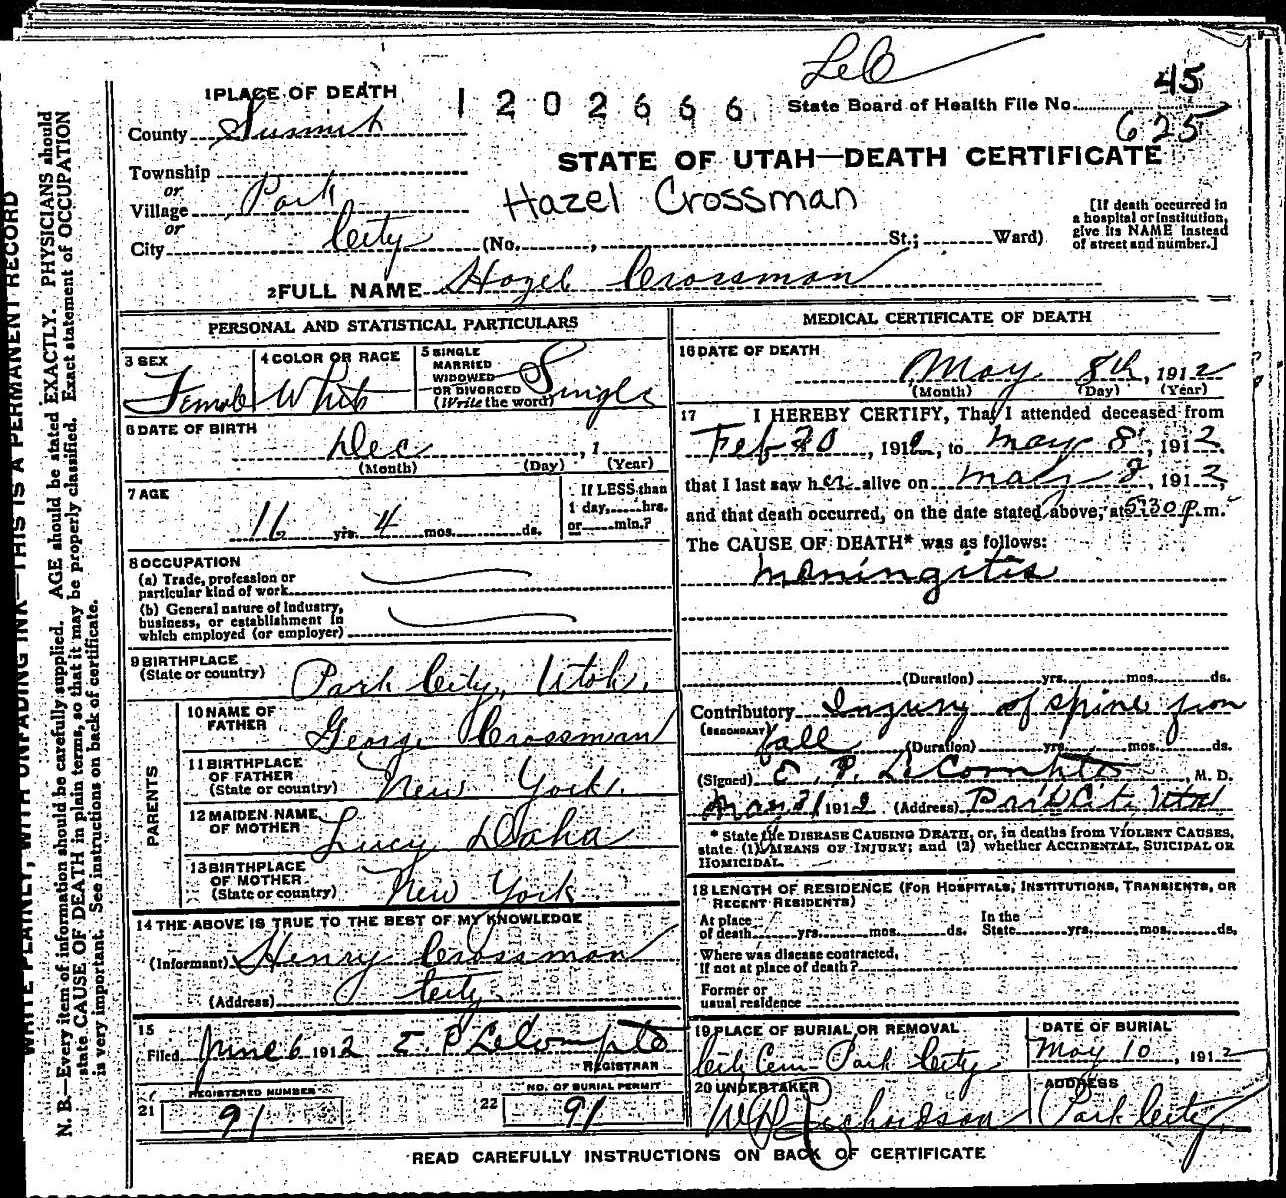 LeC
45
1 PLACE OF DEATH
1202666
State Board of Health File No.
625
County Summit
STATE OF UTAH—DEATH CERTIFICATE
Township
or
Village Park
or
City City (No. , St.; Ward)
Hazel Crossman
[If death occurred in
a hospital or institution,
give its NAME instead
of street and number.]
2 FULL NAME Hazel Crossman
PERSONAL AND STATISTICAL PARTICULARS
3 SEX
Female
4 COLOR OR RACE
White
5 SINGLE
MARRIED
WIDOWED
OR DIVORCED
(Write the word)
Single
6 DATE OF BIRTH
Dec , 1
(Month) (Day) (Year)
7 AGE
16 yrs. 4 mos. ds.
If LESS than
1 day, hrs.
or min.?
8 OCCUPATION
(a) Trade, profession or
particular kind of work
(b) General nature of industry,
business, or establishment in
which employed (or employer)
9 BIRTHPLACE
(State or country) Park City, Utah.
PARENTS
10 NAME OF
FATHER George Crossman
11 BIRTHPLACE
OF FATHER
(State or country) New York.
12 MAIDEN NAME
OF MOTHER Lucy
13 BIRTHPLACE
OF MOTHER
(State or country) New York
14 THE ABOVE IS TRUE TO THE BEST OF MY KNOWLEDGE
(Informant) Henry Crossman
(Address) City
15
Filed June 6 1912 E. P. LeCompte
REGISTRAR
REGISTERED NUMBER
21 91
NO. OF BURIAL PERMIT
22 91
MEDICAL CERTIFICATE OF DEATH
16 DATE OF DEATH
May 8th, 1912
(Month) (Day) (Year)
17 I HEREBY CERTIFY, That I attended deceased from
Feb 20, 1912, to May 8, 1912,
that I last saw her alive on May 8, 1912,
and that death occurred, on the date stated above, at 5:30 p.m.
The CAUSE OF DEATH* was as follows:
Meningitis
(Duration) yrs. mos. ds.
Contributory Injury of spine from
(SECONDARY)
fall (Duration) yrs. mos. ds.
(Signed) E. P. LeCompte, M. D.
1912 (Address) Park City Utah
* State the DISEASE CAUSING DEATH, or, in deaths from VIOLENT CAUSES,
state (1) MEANS OF INJURY; and (2) whether ACCIDENTAL, SUICIDAL OR
HOMICIDAL.
18 LENGTH OF RESIDENCE (FOR HOSPITALS, INSTITUTIONS, TRANSIENTS, OR
RECENT RESIDENTS)
At place
of death yrs. mos. ds.
In the
State yrs. mos. ds.
Where was disease contracted,
If not at place of death?
Former or
usual residence
19 PLACE OF BURIAL OR REMOVAL
City Cem Park City
DATE OF BURIAL
May 10, 1912
20 UNDERTAKER
W R Richardson
ADDRESS
Park City.
READ CAREFULLY INSTRUCTIONS ON BACK OF CERTIFICATE
WRITE PLAINLY, WITH UNFADING INK—THIS IS A PERMANENT RECORD
N. B.—Every item of information should be carefully supplied. AGE should be stated EXACTLY. PHYSICIANS should
state CAUSE OF DEATH in plain terms, so that it may be properly classified. Exact statement of OCCUPATION
is very important. See instructions on back of certificate.